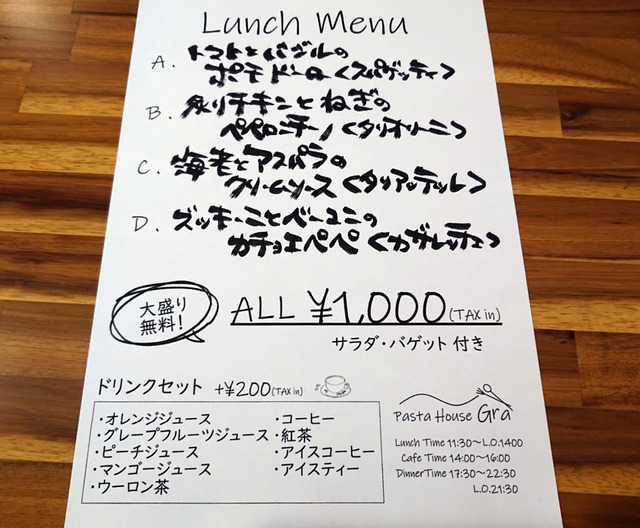 Lunch Menu
A. トマトとバジルの
ポモドーロ〈スパゲッティ〉
B. 炙りチキンとねぎの
ペペロンチーノ〈タリオリーニ〉
C. 海老とアスパラの
クリームソース〈タリアッテレ〉
D. ズッキーニとベーコンの
カチョエペペ〈カザレッチェ〉
大盛り
無料!
ALL ¥1,000(TAX in)
サラダ・バゲット 付き
ドリンクセット +¥200(TAX in)
・オレンジジュース
・グレープフルーツジュース
・ピーチジュース
・マンゴージュース
・ウーロン茶
・コーヒー
・紅茶
・アイスコーヒー
・アイスティー
Pasta House Gra
Lunch Time 11:30~L.O.1400
Cafe Time 14:00~16:00
Dinner Time 17:30~22:30
L.O.21:30